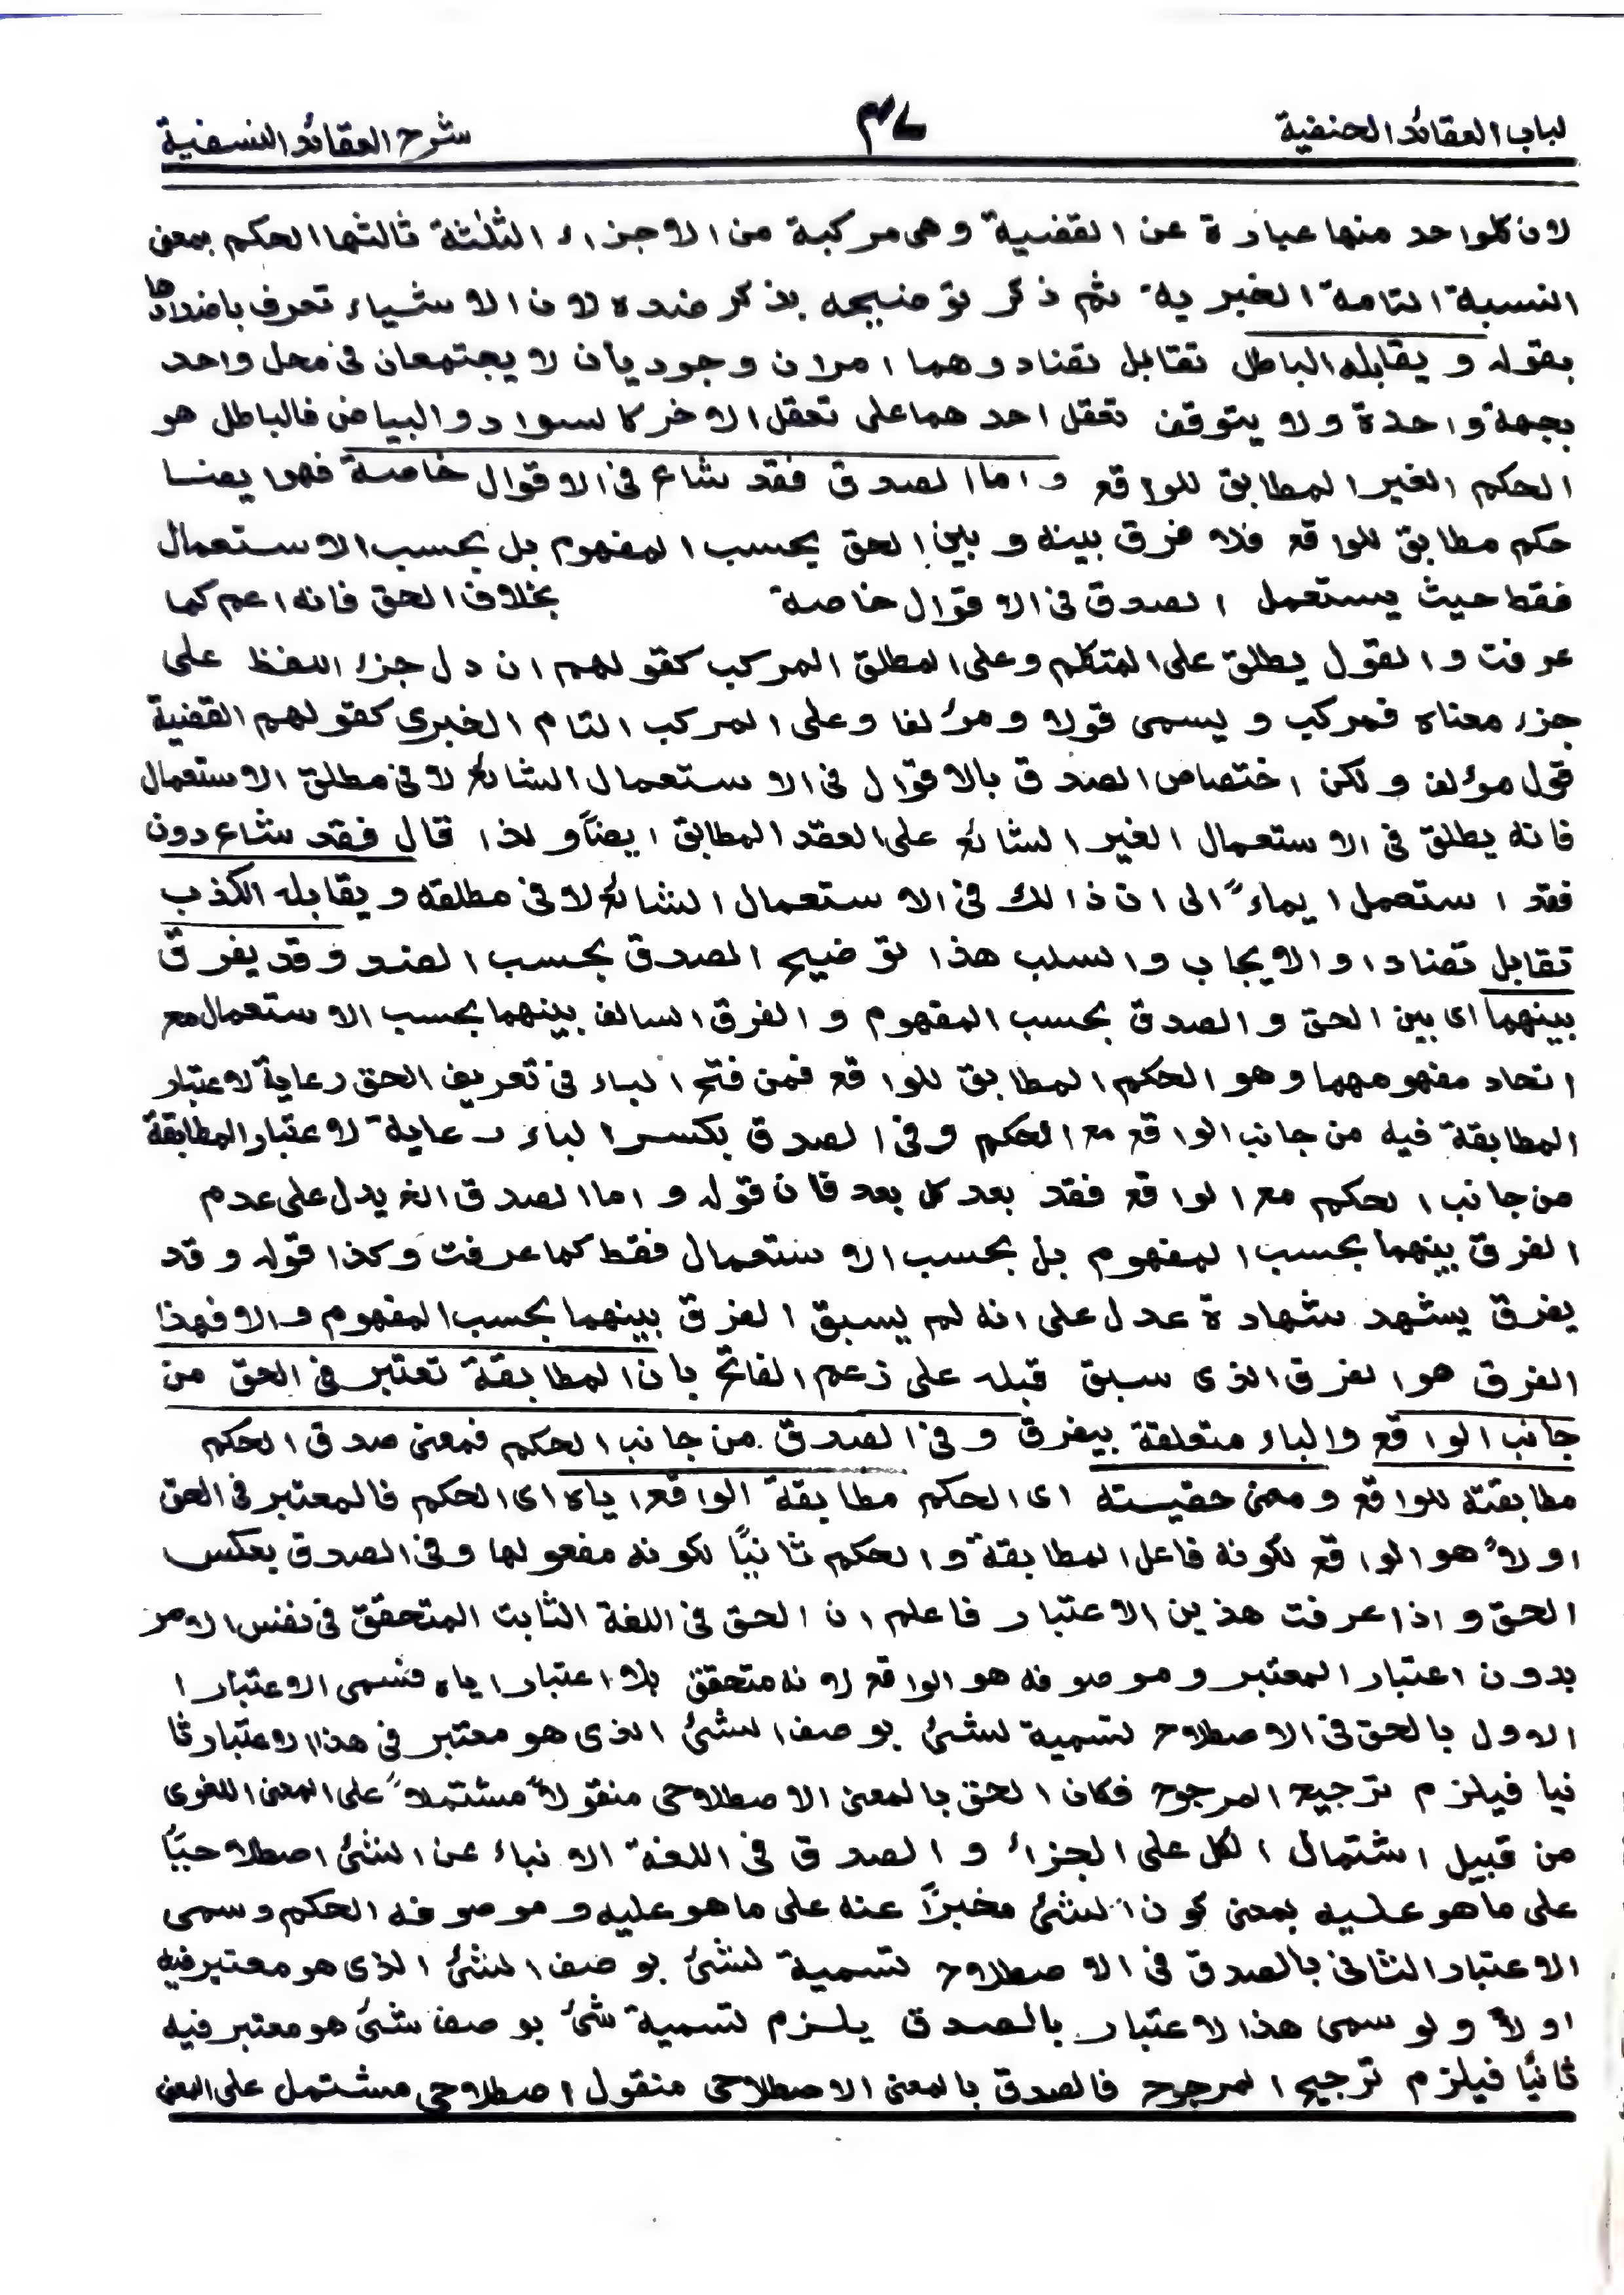 لباب العقائد الحنفية
٣٧
شرح العقائد النسفية
لان كلواحد منها عبارة عن القضية وهى مركبة من الاجزاء الثلٰثة ثالثها الحكم بمعنى
النسبة التامة الخبرية ثم ذكر توضيحه بذكر ضده لان الاشياء تعرف باضدادها
بقوله ويقابله الباطل تقابل تضاد وهما امران وجوديان لا يجتمعان فى محل واحد
بجهة واحدة ولا يتوقف تعقل احدهما على تعقل الاخر كالسواد والبياض فالباطل هو
الحكم الغير المطابق للواقع واما الصدق فقد شاع فى الاقوال خاصة فهو ايضا
حكم مطابق للواقع فلا فرق بينه وبين الحق بحسب المفهوم بل بحسب الاستعمال
فقط حيث يستعمل الصدق فى الاقوال خاصة بخلاف الحق فانه اعم كما
عرفت والقول يطلق على المتكلم وعلى المطلق المركب كقولهم ان دل جزء اللفظ على
جزء معناه فمركب ويسمى قولا ومؤلفا وعلى المركب التام الخبرى كقولهم القضية
قول مؤلف ولكن اختصاص الصدق بالاقوال فى الاستعمال الشائع لا فى مطلق الاستعمال
فانه يطلق فى الاستعمال الغير الشائع على العقد المطابق ايضاً ولذا قال فقد شاع دون
فقد استعمل ايماءً الى ان ذالك فى الاستعمال الشائع لا فى مطلقه ويقابله الكذب
تقابل تضاد او الايجاب والسلب هذا توضيح الصدق بحسب الضد وقد يفرق
بينهما اى بين الحق والصدق بحسب المفهوم والفرق السالف بينهما بحسب الاستعمال مع
اتحاد مفهومهما وهو الحكم المطابق للواقع فمن فتح الباء فى تعريف الحق رعاية لاعتبار
المطابقة فيه من جانب الواقع مع الحكم وفى الصدق بكسر الباء رعاية لاعتبار المطابقة
من جانب الحكم مع الواقع فقد بعد كل بعد فان قوله واما الصدق الخ يدل على عدم
الفرق بينهما بحسب المفهوم بل بحسب الاستعمال فقط كما عرفت وكذا قوله وقد
يفرق يشهد شهادة عدل على انه لم يسبق الفرق بينهما بحسب المفهوم والا فهذا
الفرق هو الفرق الذى سبق قبله على زعم الفاتح بان المطابقة تعتبر فى الحق من
جانب الواقع والباء متعلقة بيفرق وفى الصدق من جانب الحكم فمعنى صدق الحكم
مطابقته للواقع ومعنى حقيسته اى الحكم مطابقة الواقع اياه اى الحكم فالمعتبر فى الحق
اولاً هو الواقع لكونه فاعل المطابقة والحكم ثانيًا لكونه مفعولها وفى الصدق بعكس
الحق واذا عرفت هذين الاعتبار فاعلم ان الحق فى اللغة الثابت المتحقق فى نفس الامر
بدون اعتبار المعتبر وموصوفه هو الواقع لانه متحقق بلا اعتبار اياه فسمى الاعتبار ا
الاول بالحق فى الاصطلاح تسمية لشئ بوصف الشئ الذى هو معتبر فى هذا الاعتبار ثا
نيا فيلزم ترجيح المرجوح فكان الحق بالمعنى الاصطلاحى منقولاً مشتملاً على المعنى اللغوى
من قبيل اشتمال الكل على الجزء والصدق فى اللغة الانباء عن الشئ اصطلاحيًا
على ما هو عليه بمعنى كون الشئ مخبرًا عنه على ما هو عليه وموصوفه الحكم وسمى
الاعتبار الثانى بالصدق فى الاصطلاح تسمية لشئ بوصف الشئ الذى هو معتبر فيه
اولاً ولو سمى هذا الاعتبار بالصدق يلزم تسمية شئ بوصف شئ هو معتبر فيه
ثانيًا فيلزم ترجيح المرجوح فالصدق بالمعنى الاصطلاحى منقول اصطلاحى مشتمل على المعنى